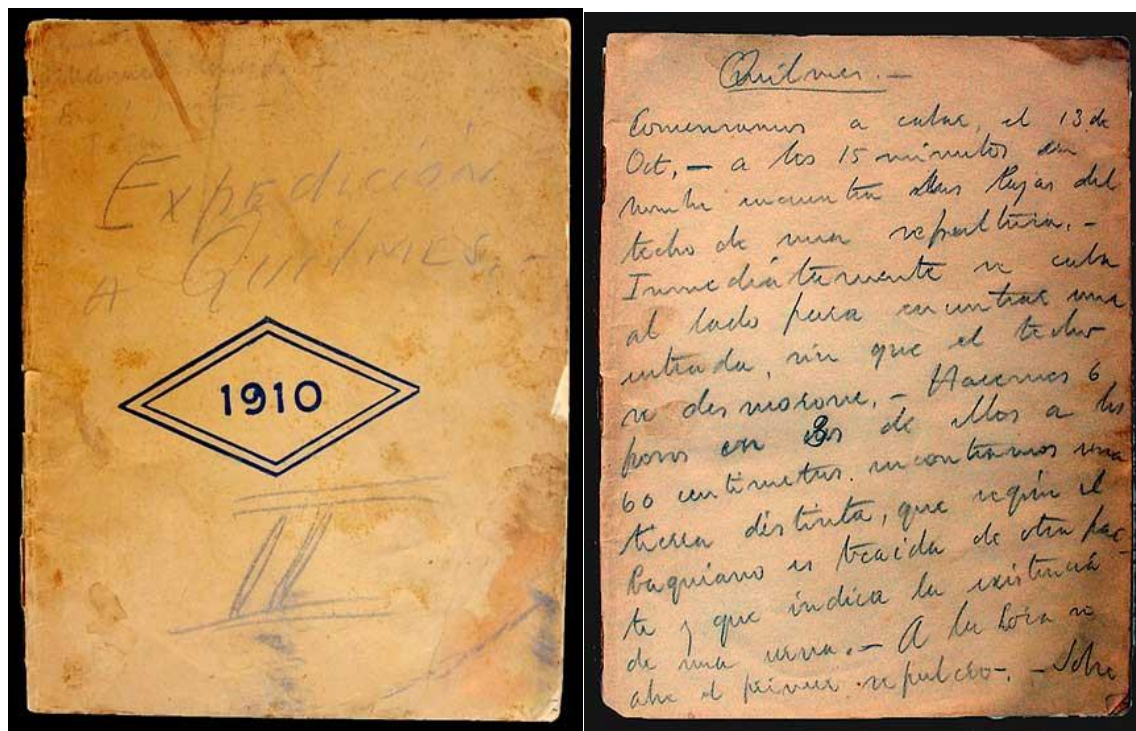 Expedición
A QUILMES.-
1910
II
Quilmes.-
Comenzamos a cabar, el 13 de
Oct,- a los 15 minutos un
hombre encuentra las lajas del
techo de una sepultura.-
Inmediatamente se caba
al lado para encontrar una
entrada, sin que el techo
se desmorone.- Hacemos 6
pozos en 3 de ellos a los
60 centimetros encontramos una
tierra distinta, que según el
baquiano es traida de otra par-
te y que indica la existencia
de una urna.- A la hora se
abre el primer sepulcro.- Sobre